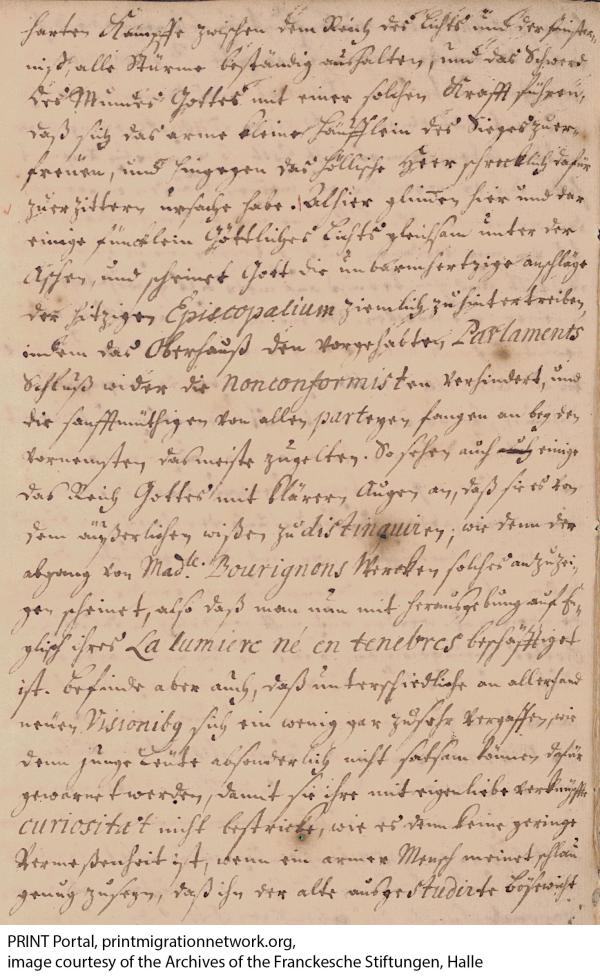 harten Kampffe zwischen dem Reich des Lichts und der finster-
niß, alle Stürme beständig aushalten, und das Schwerd
des Mundes Gottes mit einer solchen Krafft führen,
daß sich das arme kleine Häufflein des Sieges zuer-
freuen, und hingegen das höllische Heer schrecklich dafür
zuerzittern ursache habe. Alhier glimmen hier und dar
einige füncklein Göttliches Lichts gleichsam unter der
Aschen, und scheinet Gott die unbarmhertzige anschläge
der hitzigen Episcopalium ziemlich zuhintertreiben,
indem das Oberhauß den vorgehabten Parlaments
Schluß wider die Nonconformisten verhindert, und
die sanfftmüthigen von allen parteyen fangen an bey den
vornemsten das meiste zugelten. So sehen auch einige
das Reich Gottes mit klärern Augen an, daß sie es von
dem äußerlichen wißen zu distinguiren; wie denn der
abgang von Madle. Bourignons Wercken solches anzuzei-
gen scheinet, also daß man nun mit herausgebung auf E-
glisch ihres La lumiere né en tenebres beschäfftiget
ist. Befinde aber auch, daß unterschiedliche an allerhand
neuen Visionibq sich ein wenig gar zusehr vergaffen, wie
denn junge Leute absonderlich nicht satsam können dafür
gewarnet werden, damit sie ihre mit eigenliebe verknüpffte
curiositæt nicht bestricke, wie es denn keine geringe
Vermeßenheit ist, wenn ein armer Mensch meinet schlau
genug zuseyn, daß ihn der alte ausgestudirte Bösewicht
PRINT Portal, printmigrationnetwork.org,
image courtesy of the Archives of the Franckesche Stiftungen, Halle